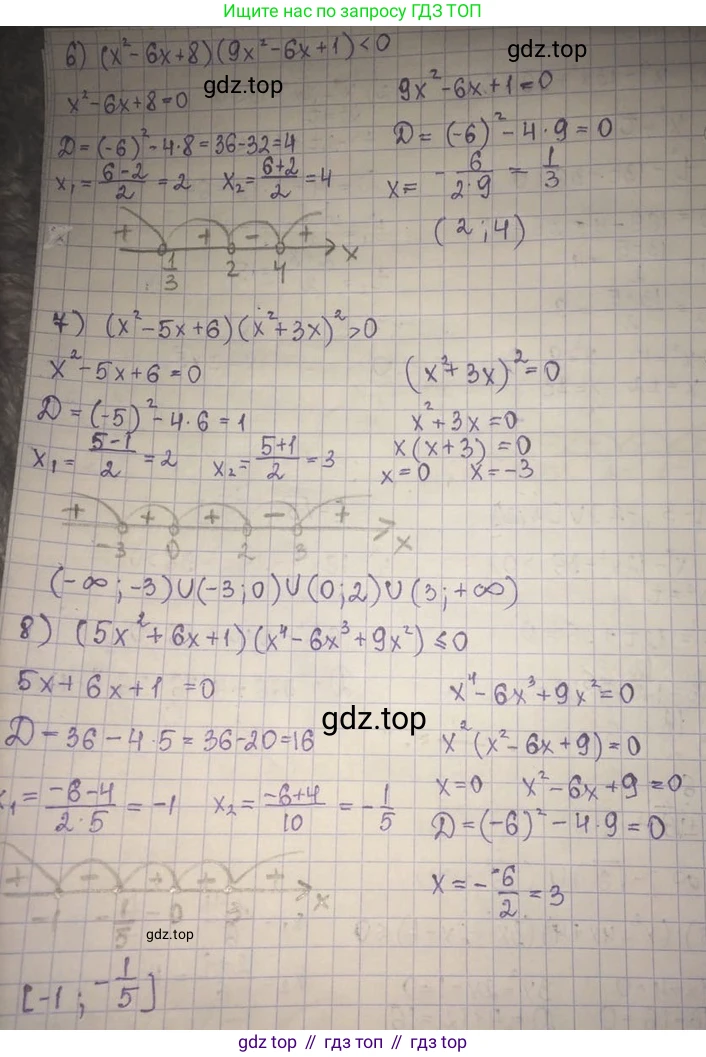 Ищите нас по запросу ГДЗ ТОП
6) (x² - 6x + 8) (9x² - 6x + 1) < 0
gdz.top
x² - 6x + 8 = 0
9x² - 6x + 1 = 0
D = (-6)² - 4·8 = 36 - 32 = 4
D = (-6)² - 4·9 = 0
x₁ = (6-2)/2 = 2 x₂ = (6+2)/2 = 4
x = - 6/(2·9) = 1/3
(2 ; 4)
+ + - + x
1/3 2 4
7) (x² - 5x + 6) (x² + 3x)² > 0
x² - 5x + 6 = 0
(x² + 3x)² = 0
D = (-5)² - 4·6 = 1
x² + 3x = 0
x₁ = (5-1)/2 = 2 x₂ = (5+1)/2 = 3
x (x + 3) = 0
x = 0 x = -3
+ + + - + x
-3 0 2 3
(-∞ ; -3) U (-3 ; 0) U (0 ; 2) U (3 ; +∞)
8) (5x² + 6x + 1) (x⁴ - 6x³ + 9x²) ≤ 0
5x + 6x + 1 = 0
x⁴ - 6x³ + 9x² = 0
gdz.top
D - 36 - 4·5 = 36 - 20 = 16
x² (x² - 6x + 9) = 0
x₁ = (-6-4)/(2·5) = -1 x₂ = (-6+4)/10 = - 1/5
x = 0 x² - 6x + 9 = 0
D = (-6)² - 4·9 = 0
x = - -6/2 = 3
+ - + + + x
-1 -1/5 0 3
gdz.top
[-1 ; -1/5]
gdz.top // гдз топ // гдз.топ // gdz top